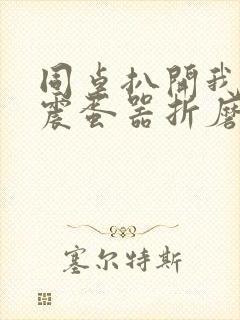 同桌扒開我
震蛋器折磨
塞尔特斯